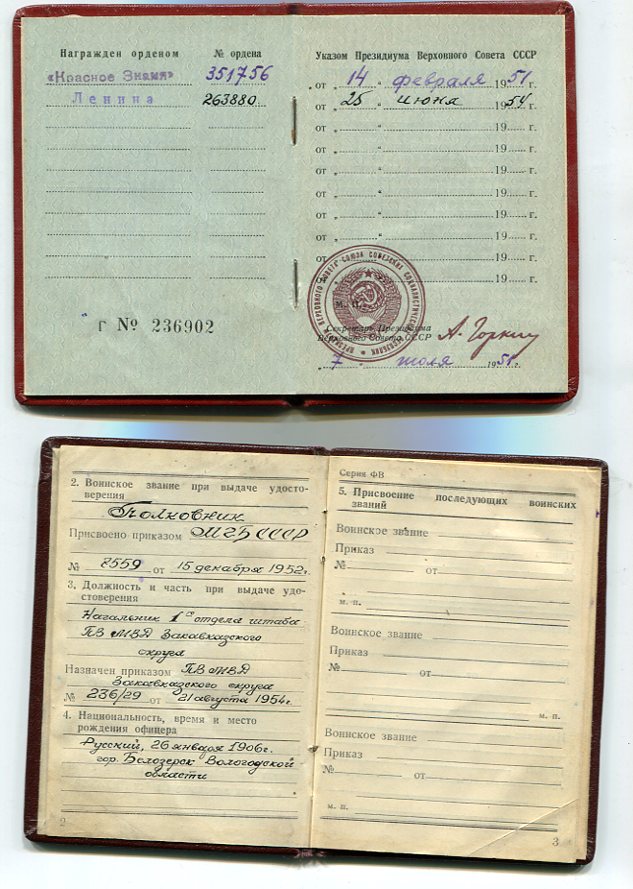 Награжден орденом
№ ордена
«Красное Знамя» 351756
Ленина 263880
г № 236902
Указом Президиума Верховного Совета СССР
от „ 14 “ февраля 1951 г.
от „ 25 “ июня 1954 г.
от „ “ 19 г.
от „ “ 19 г.
от „ “ 19 г.
от „ “ 19 г.
от „ “ 19 г.
от „ “ 19 г.
от „ 19 г.
от 19 г.
м. п.
Секретарь Президиума
Верховного Совета СССР
А. Горкин
„ 7 июля 1951 г.
2. Воинское звание при выдаче удосто-
верения
Полковник
Присвоено приказом МГБ СССР
№ 2559 от 15 декабря 1952г.
3. Должность и часть при выдаче удо-
стоверения
Начальник 1го отдела штаба
ПВ МВД Закавказского
округа
Назначен приказом ПВ МВД
Закавказского округа
№ 236/29 от 21 августа 1954г.
4. Национальность, время и место
рождения офицера
Русский, 26 января 1906г.
гор. Белозерск Вологодской
области
2
Серия ФВ
5. Присвоение последующих воинских
званий
Воинское звание
Приказ
№ от
м. п.
Воинское звание
Приказ
№ от
м. п.
Воинское звание
Приказ
№ от
м. п.
3